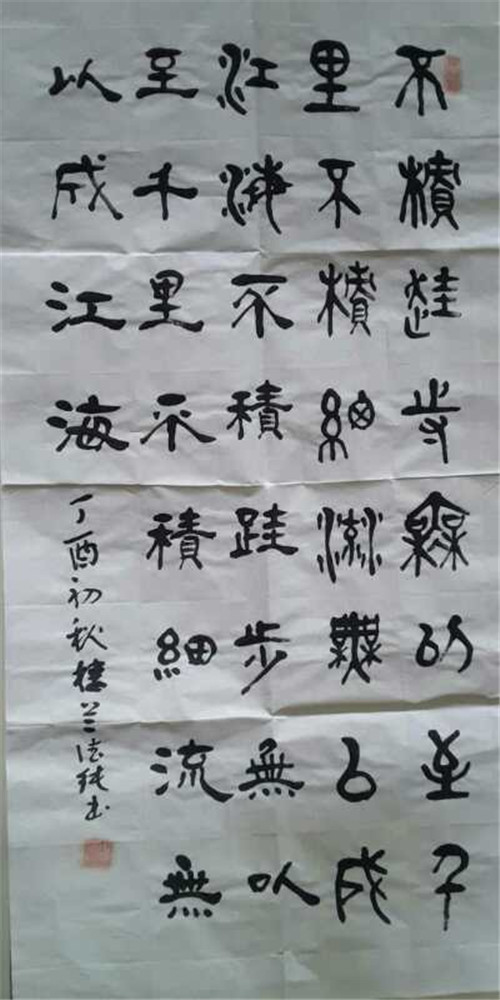 不積跬步無以至千
里不積細流無以成
江海不積跬步無以
至千里不積細流無
以成江海
丁酉初秋